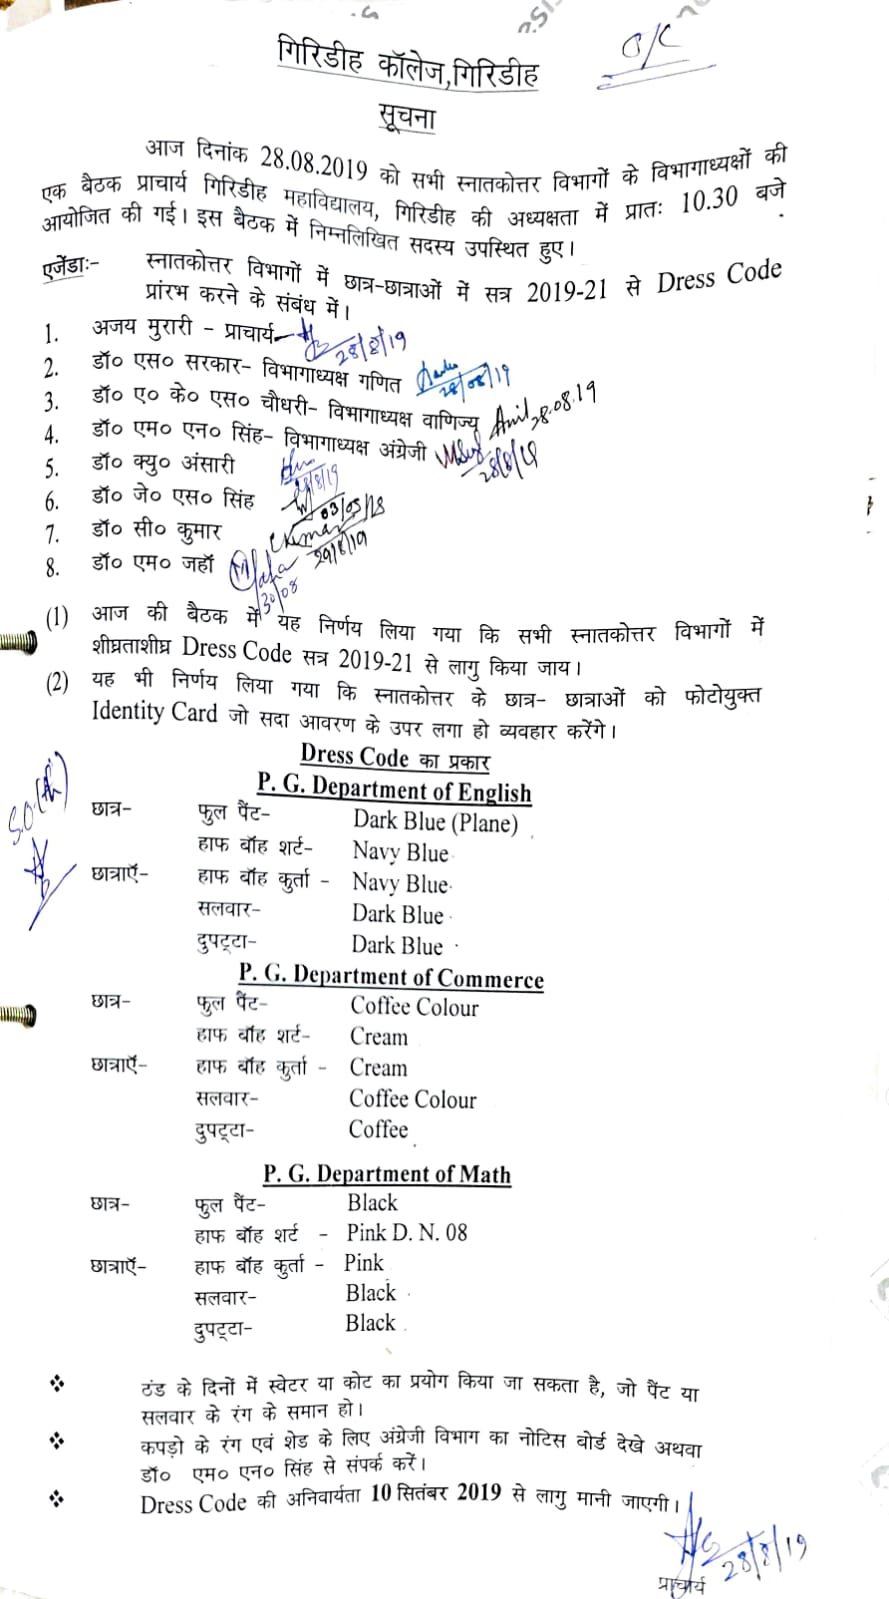 O/C
गिरिडीह कॉलेज,गिरिडीह
सूचना
आज दिनांक 28.08.2019 को सभी स्नातकोत्तर विभागों के विभागाध्यक्षों की
एक बैठक प्राचार्य गिरिडीह महाविद्यालय, गिरिडीह की अध्यक्षता में प्रातः 10.30 बजे
आयोजित की गई। इस बैठक में निम्नलिखित सदस्य उपस्थित हुए।
एजेंडाः- स्नातकोत्तर विभागों में छात्र-छात्राओं में सत्र 2019-21 से Dress Code
प्रांरभ करने के संबंध में।
1. अजय मुरारी - प्राचार्य 28/8/19
2. डॉ० एस० सरकार- विभागाध्यक्ष गणित 28/08/19
3. डॉ० ए० के० एस० चौधरी- विभागाध्यक्ष वाणिज्य Anil 28.08.19
4. डॉ० एम० एन० सिंह- विभागाध्यक्ष अंग्रेजी 28/8/19
5. डॉ० क्यु० अंसारी 28/8/19
6. डॉ० जे० एस० सिंह
7. डॉ० सी० कुमार CKumar 29/8/19
8. डॉ० एम० जहॉ 30/08
(1) आज की बैठक में यह निर्णय लिया गया कि सभी स्नातकोत्तर विभागों में
शीघ्रताशीघ्र Dress Code सत्र 2019-21 से लागु किया जाय।
(2) यह भी निर्णय लिया गया कि स्नातकोत्तर के छात्र- छात्राओं को फोटोयुक्त
Identity Card जो सदा आवरण के उपर लगा हो व्यवहार करेंगे।
Dress Code का प्रकार
P. G. Department of English
छात्र- फुल पैंट- Dark Blue (Plane)
हाफ बॉह शर्ट- Navy Blue
छात्राऍ- हाफ बॉह कुर्ता - Navy Blue
सलवार- Dark Blue
दुपट्टा- Dark Blue
P. G. Department of Commerce
छात्र- फुल पैंट- Coffee Colour
हाफ बॉह शर्ट- Cream
छात्राऍ- हाफ बॉह कुर्ता - Cream
सलवार- Coffee Colour
दुपट्टा- Coffee
P. G. Department of Math
छात्र- फुल पैंट- Black
हाफ बॉह शर्ट - Pink D. N. 08
छात्राऍ- हाफ बॉह कुर्ता - Pink
सलवार- Black
दुपट्टा- Black
❖ ठंड के दिनों में स्वेटर या कोट का प्रयोग किया जा सकता है, जो पैंट या
सलवार के रंग के समान हो।
❖ कपड़ो के रंग एवं शेड के लिए अंग्रेजी विभाग का नोटिस बोर्ड देखे अथवा
डॉ० एम० एन० सिंह से संपर्क करें।
❖ Dress Code की अनिवार्यता 10 सितंबर 2019 से लागु मानी जाएगी।
28/8/19
प्राचार्य